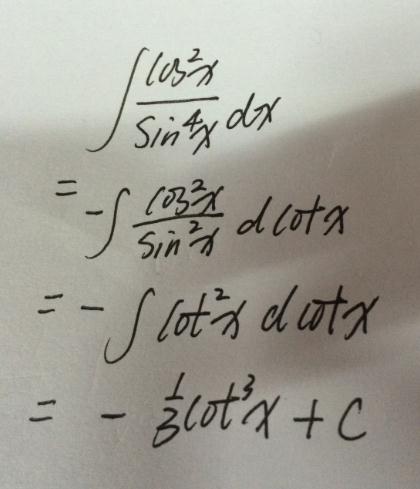 ∫ cos²x / sin⁴x dx
= -∫ cos²x / sin²x d cotx
= -∫ cot²x d cotx
= -1/3 cot³x + C